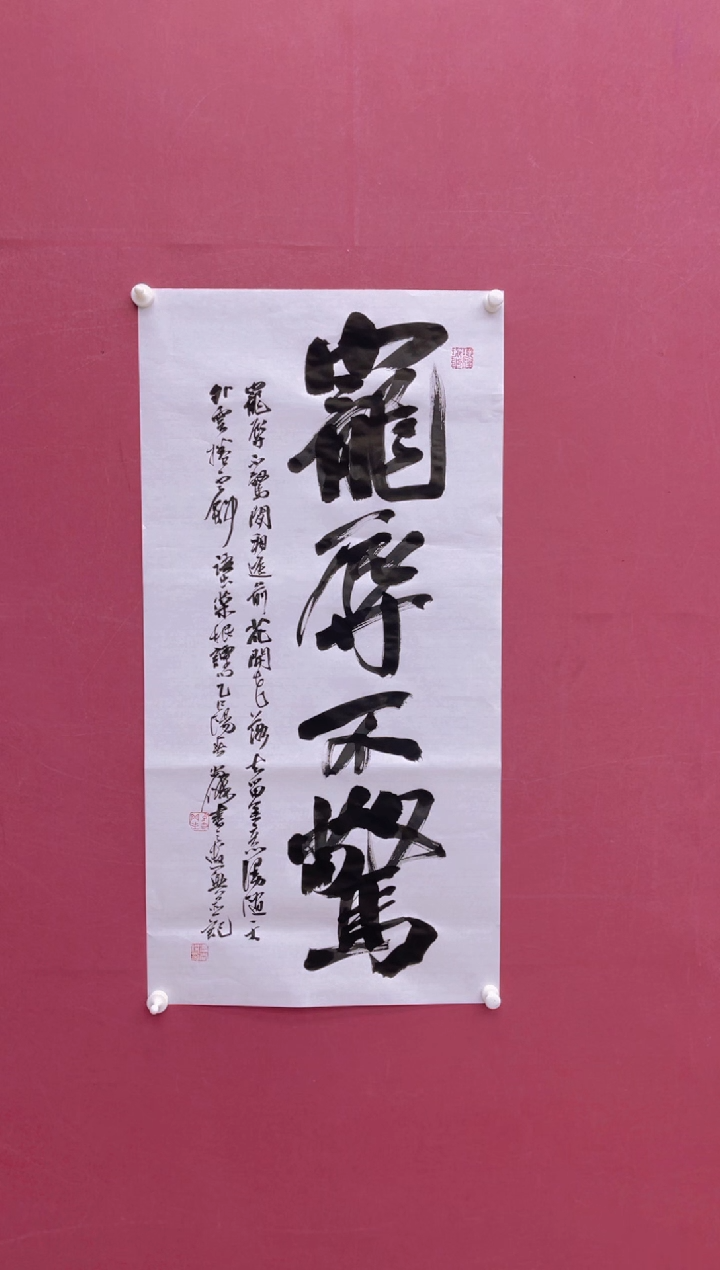 寵辱不驚
寵辱不驚閒看庭前花開花落去留無意漫隨天
外雲捲雲舒 語出菜根譚乙巳陽春 書之遣興并記